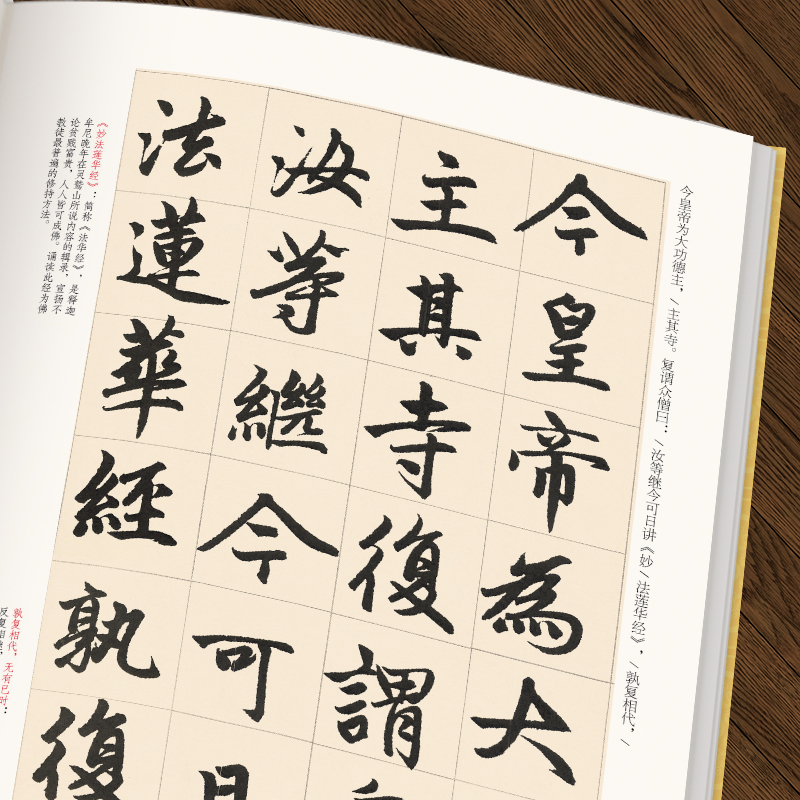 今皇帝为大功德主，\主其寺。复谓众僧曰：\汝等继今可日讲《妙\法莲华经》，\孰复相代，\
今皇帝為大
主其寺復謂
汝等繼今可日
法蓮華經孰復
《妙法莲华经》：简称《法华经》，是释迦
牟尼晚年在灵鹫山所说内容的辑录，宣扬不
论贫贱富贵，人人皆可成佛。诵读此经为佛
教徒最普遍的修持方法。
孰复相代，无有已时：
反复相继，